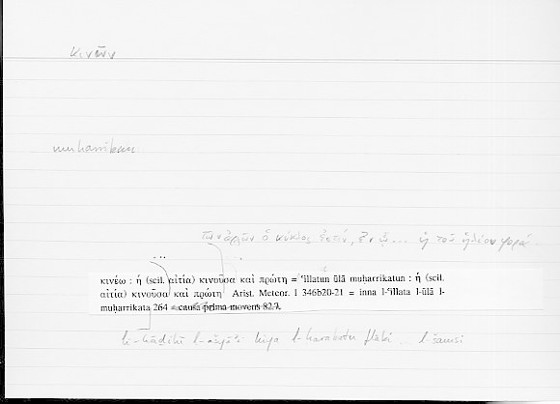 κινεῖν
muḥarrikun
τῶν ἀρχῶν ὁ κύκλος ἐστίν, ἐν ᾧ ... ἡ τοῦ ἡλίου φορά
...
κινέω : ἡ (scil. αἰτία) κινοῦσα καὶ πρώτη = ʿillatun ūlā muḥarrikatun : ἡ (scil.
αἰτία) κινοῦσα καὶ πρώτη Arist. Meteor. I 346b20-21 = inna l-ʿillata l-ūlā l-
muḥarrikata 264 = causa prima movens 82.7,
li-hāḏihi l-ašyāʾi hiya l-ḥarakatu l-šamsi